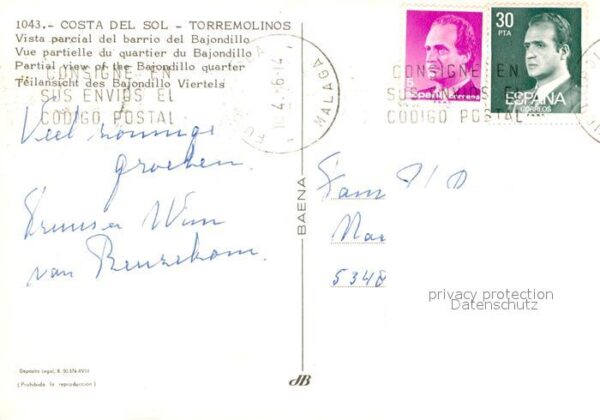 1043.- COSTA DEL SOL - TORREMOLINOS
Vista parcial del barrio del Bajondillo
Vue partielle du quartier du Bajondillo
Partial view of the Bajondillo quarter
Teilansicht des Bajondillo Viertels
CONSIGNE EN
SUS ENVIOS EL
CODIGO POSTAL
MALAGA
5
España
correos
30
PTA
ESPAÑA
CORREOS
CONSIGNE EN
SUS ENVIOS EL
CODIGO POSTAL
Veel zonnige
groeten.
Wim
van
BAENA
Fam
5348
privacy protection
Datenschutz
Depósito Legal, B. 50.576-XVIII
(Prohibida la reproducción)
JB